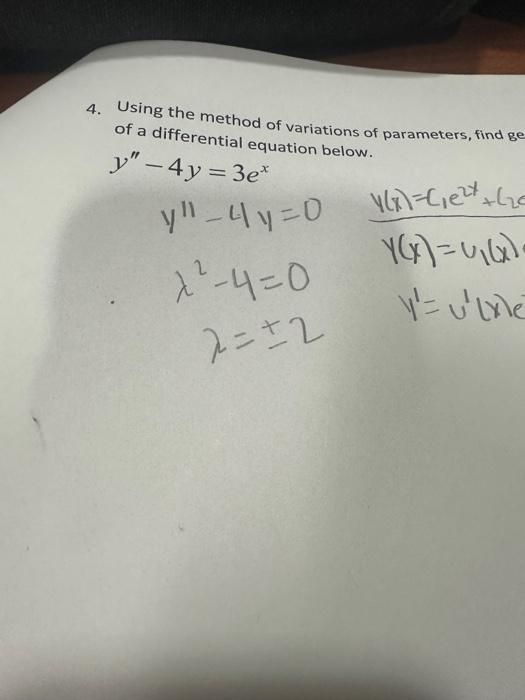 4. Using the method of variations of parameters, find ge
of a differential equation below.
y" − 4y = 3eˣ
y'' − 4y = 0
λ² − 4 = 0
λ = ± 2
y(x) = C₁e²ˣ + C₂e
y(x) = u₁(x)
y' = u'(x)e